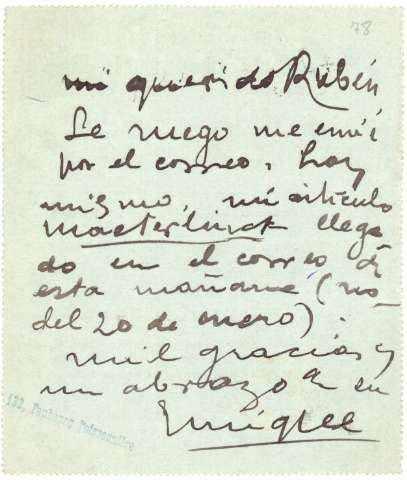 78
mi querido Rubén
Le ruego me envíe
por el correo, hoy
mismo, mi artículo
Maeterlinck llega
do en el correo de
esta mañana (no
del 20 de enero).
mil gracias y
un abrazo de su
Enrique
132, Faubourg Poissonnière